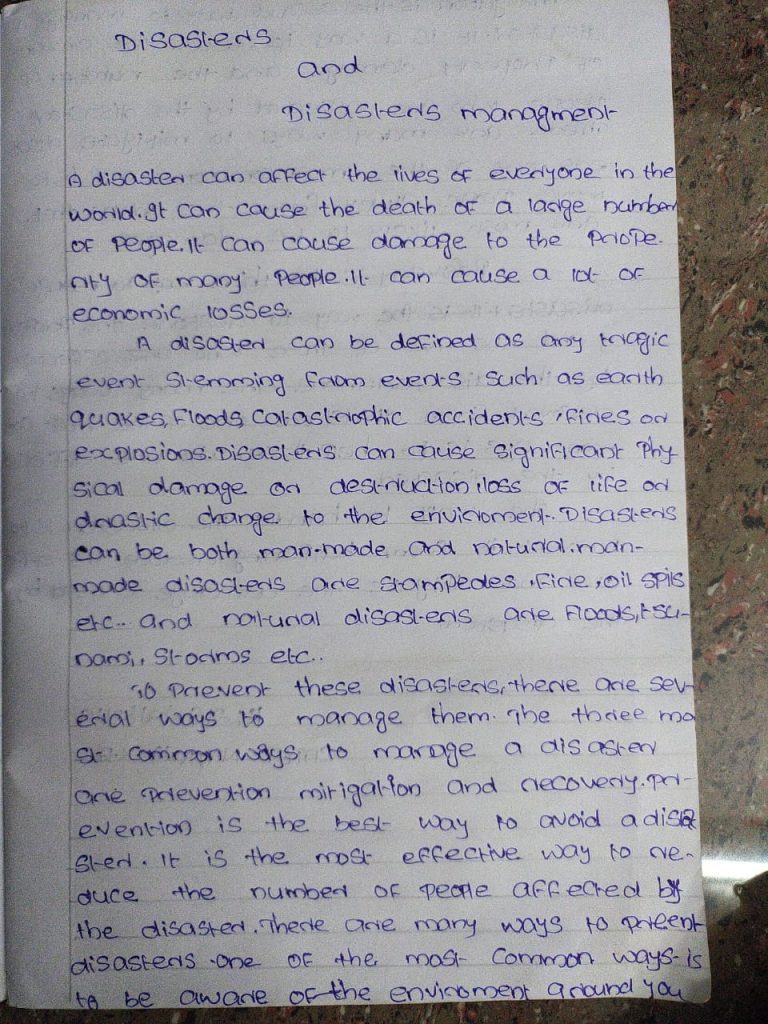 Disasters
and
Disasters managment
A disaster can affect the lives of everyone in the
world. It can cause the death of a large number
of people. It can cause damage to the prope-
rty of many people. It can cause a lot of
economic losses.
A disaster can be defined as any tragic
event stemming from events such as earth
quakes, floods, catastrophic accidents, fires or
explosions. Disasters can cause significant phy-
sical damage or destruction, loss of life or
drastic change to the enviroment. Disasters
can be both man-made and natural. man-
made disasters are stampedes, fire, oil spils
etc.. and natural disasters are floods, tsu-
nami, storms etc..
To prevent these disasters, there are sev-
eral ways to manage them. The three mo
st common ways to manage a disaster
are prevention mitigation and recovery. pr-
evention is the best way to avoid a disa
ster. It is the most effective way to re-
duce the number of people affected by
the disaster. There are many ways to preent
disasters. one of the most common ways is
to be aware of the enviroment around you